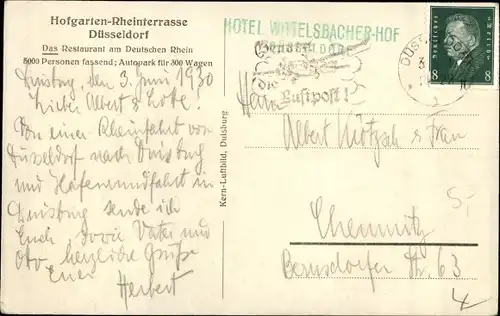 Hofgarten-Rheinterrasse
Düsseldorf
Das Restaurant am Deutschen Rhein
5000 Personen fassend; Autopark für 300 Wagen
HOTEL WITTELSBACHER-HOF
DÜSSELDORF
die
Luftpost!
DÜSSELDORF
8 8
Duisburg, den 3. Juni 1930
Liebe Albert & Lote!
Von einer Rheinfahrt von
Düsseldorf nach Duisburg
und Hafenrundfahrt in
Duisburg sende ich
Euch sowie Vater und
Otto herzliche Grüße
Euer
Herbert
Kern-Luftbild, Duisburg
Herrn
Albert Nötzsch & Frau
Chemnitz
Bernsdorfer Str. 63
5,-
4